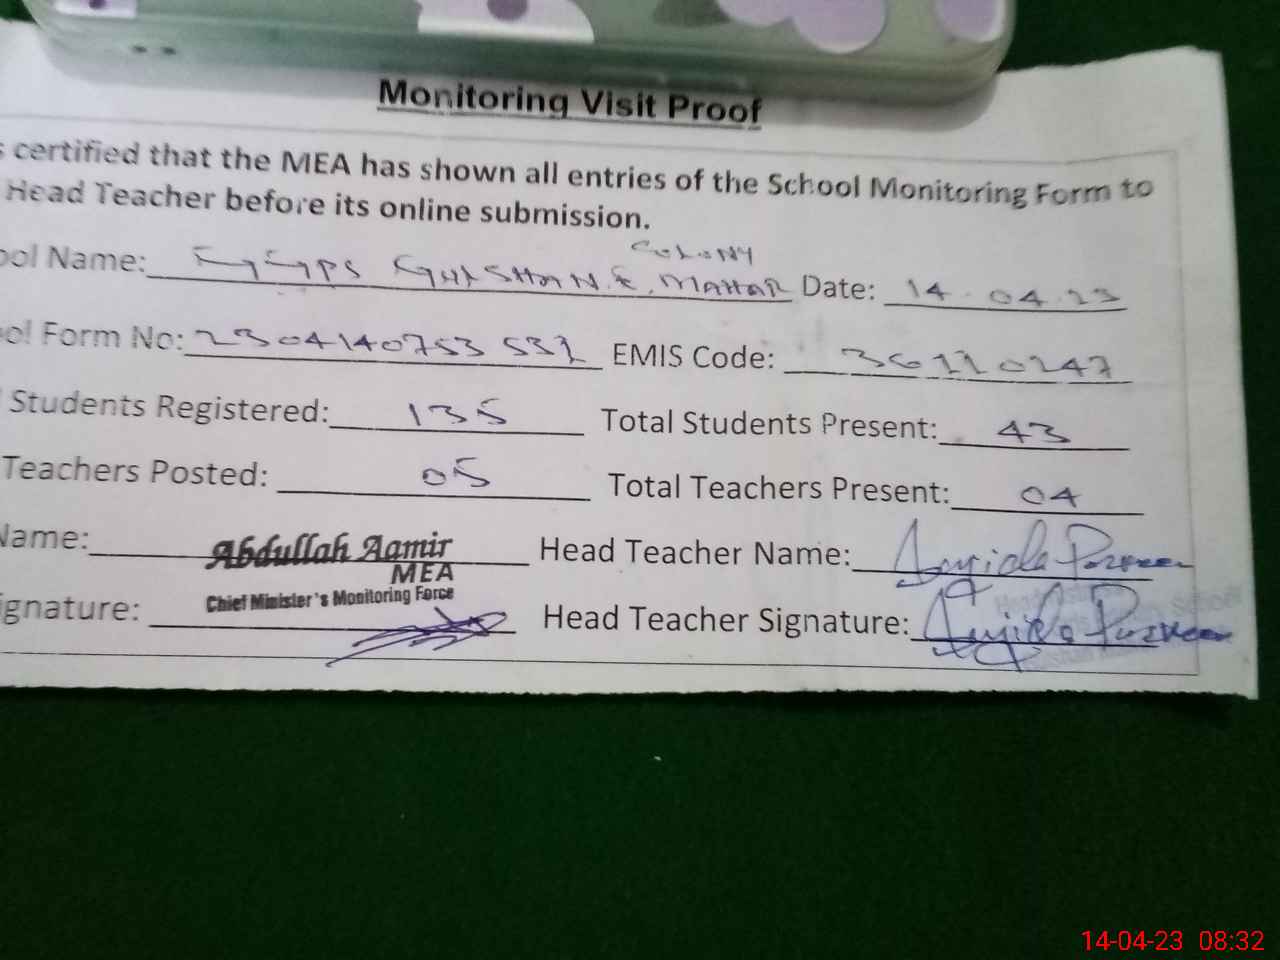 Monitoring Visit Proof
s certified that the MEA has shown all entries of the School Monitoring Form to
Head Teacher before its online submission.
COLONY
ool Name: GGPS GULSHAN.E.MAHAR Date: 14.04.23
ool Form No: 2304140753531 EMIS Code: 36110247
Students Registered: 135 Total Students Present: 43
Teachers Posted: 05 Total Teachers Present: 04
Name: Abdullah Aamir Head Teacher Name: Parveen
MEA
Chief Minister's Monitoring Force
ignature: Head Teacher Signature: Parveen
14-04-23 08:32